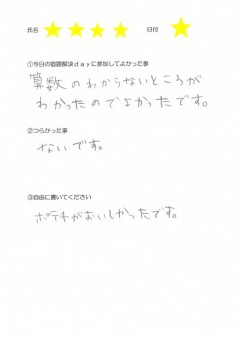 氏名
日付
①今日の宿題解決dayに参加してよかった事
算数のわからないところが
わかったのでよかったです。
②つらかった事
ないです。
③自由に書いてください
ポテチがおいしかったです。